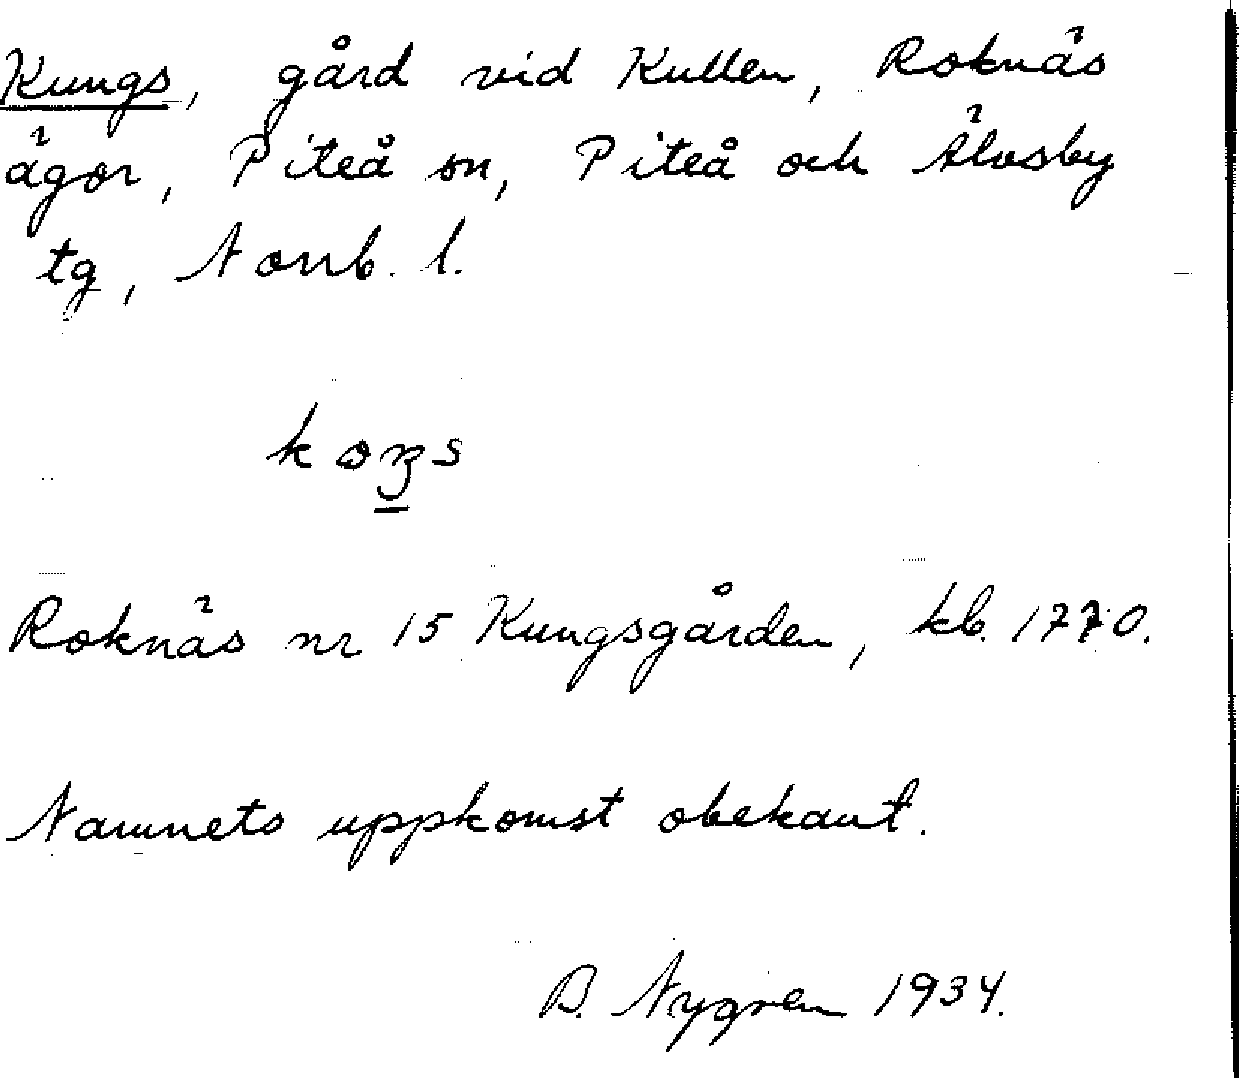 Kungs, gård vid Kullen, Roknäs
ägor, Piteå sn, Piteå och Älvsby
tg, Norrb. l.
Roknäs nr 15 Kungsgården, kb. 1770.
Namnets uppkomst obekant.
B. Nygren 1934.